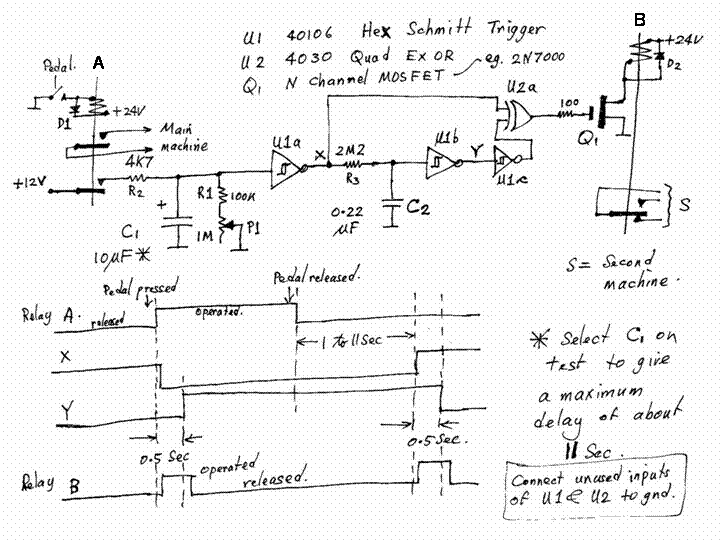 U1 40106 Hex Schmitt Trigger
U2 4030 Quad Ex OR
Q1 N Channel MOSFET
eg. 2N7000
A
B
Pedal.
D1
+24V
+24V
D2
U2a
100
Q1
Main
machine
4K7
R2
+12V
U1a
X
2M2
R3
U1b
Y
U1c
R1
100K
P1
1M
+
C1
10µF *
0.22
µF
C2
S
S = Second
machine.
Pedal pressed
Pedal released.
Relay A.
released
operated.
1 to 11 Sec
X
Y
0.5 Sec
0.5 Sec.
Relay B
operated
released.
* Select C1 on
test to give
a maximum
delay of about
11 Sec.
Connect unused inputs
of U1 & U2 to gnd.